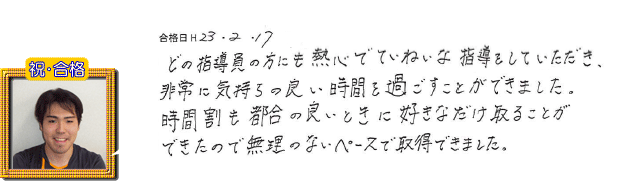 合格日 H23.2.17
祝・合格
どの指導員の方にも熱心でていねいな指導をしていただき、
非常に気持ちの良い時間を過ごすことができました。
時間割も都合の良いときに好きなだけ取ることが
できたので無理のないペースで取得できました。